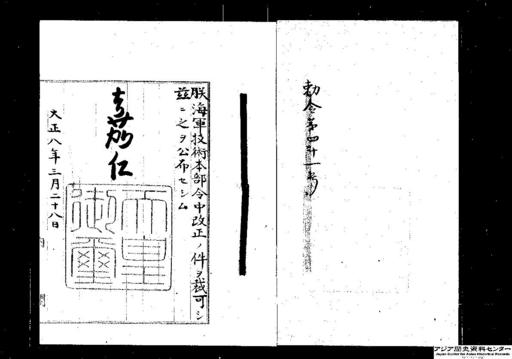 勅令第四十一号
朕海軍技術本部令中改正ノ件ヲ裁可シ
茲ニ之ヲ公布セシム
嘉仁
天皇御璽
大正八年三月二十八日
内閣
アジア歴史資料センター
Japan Center for Asian Historical Records